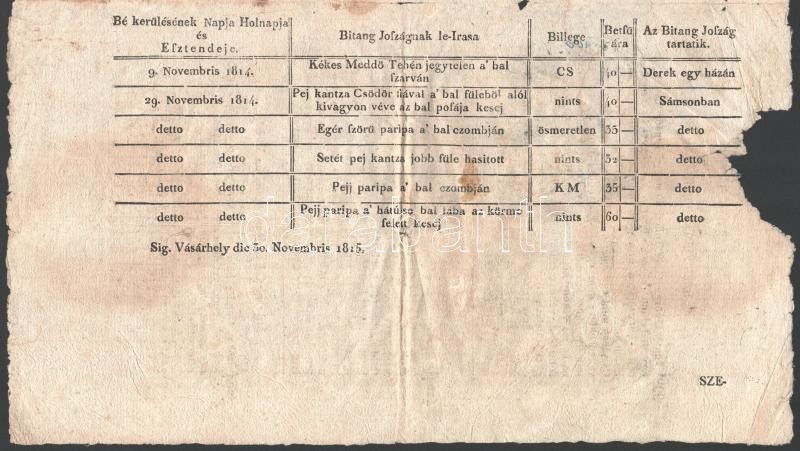 Bé kerülésének Napja Holnapja és Esztendeje. | Bitang Joſzágnak le-Irasa | Billege | Betſű ára | Az Bitang Joſzág tartatik.
9. Novembris 1814. | Kékes Meddő Tehén jegytelen a' bal szarván | CS | 40 — | Derek egy házán
29. Novembris 1814. | Pej kantza Csödör fiával a' bal füleböl alól kivagyon véve az bal pofája kesej | nints | 40 — | Sámsonban
detto detto | Egér ſzörű paripa a' bal czombján | ösmeretlen | 35 — | detto
detto detto | Setét pej kantza jobb füle hasitott | nints | 32 — | detto
detto detto | Pejj paripa a' bal czombján | K M | 35 — | detto
detto detto | Pejj paripa a' hátúlsó bal lába az körme felett kesej | nints | 60 — | detto
Sig. Vásárhely die 30. Novembris 1815.
SZE-
darabanth